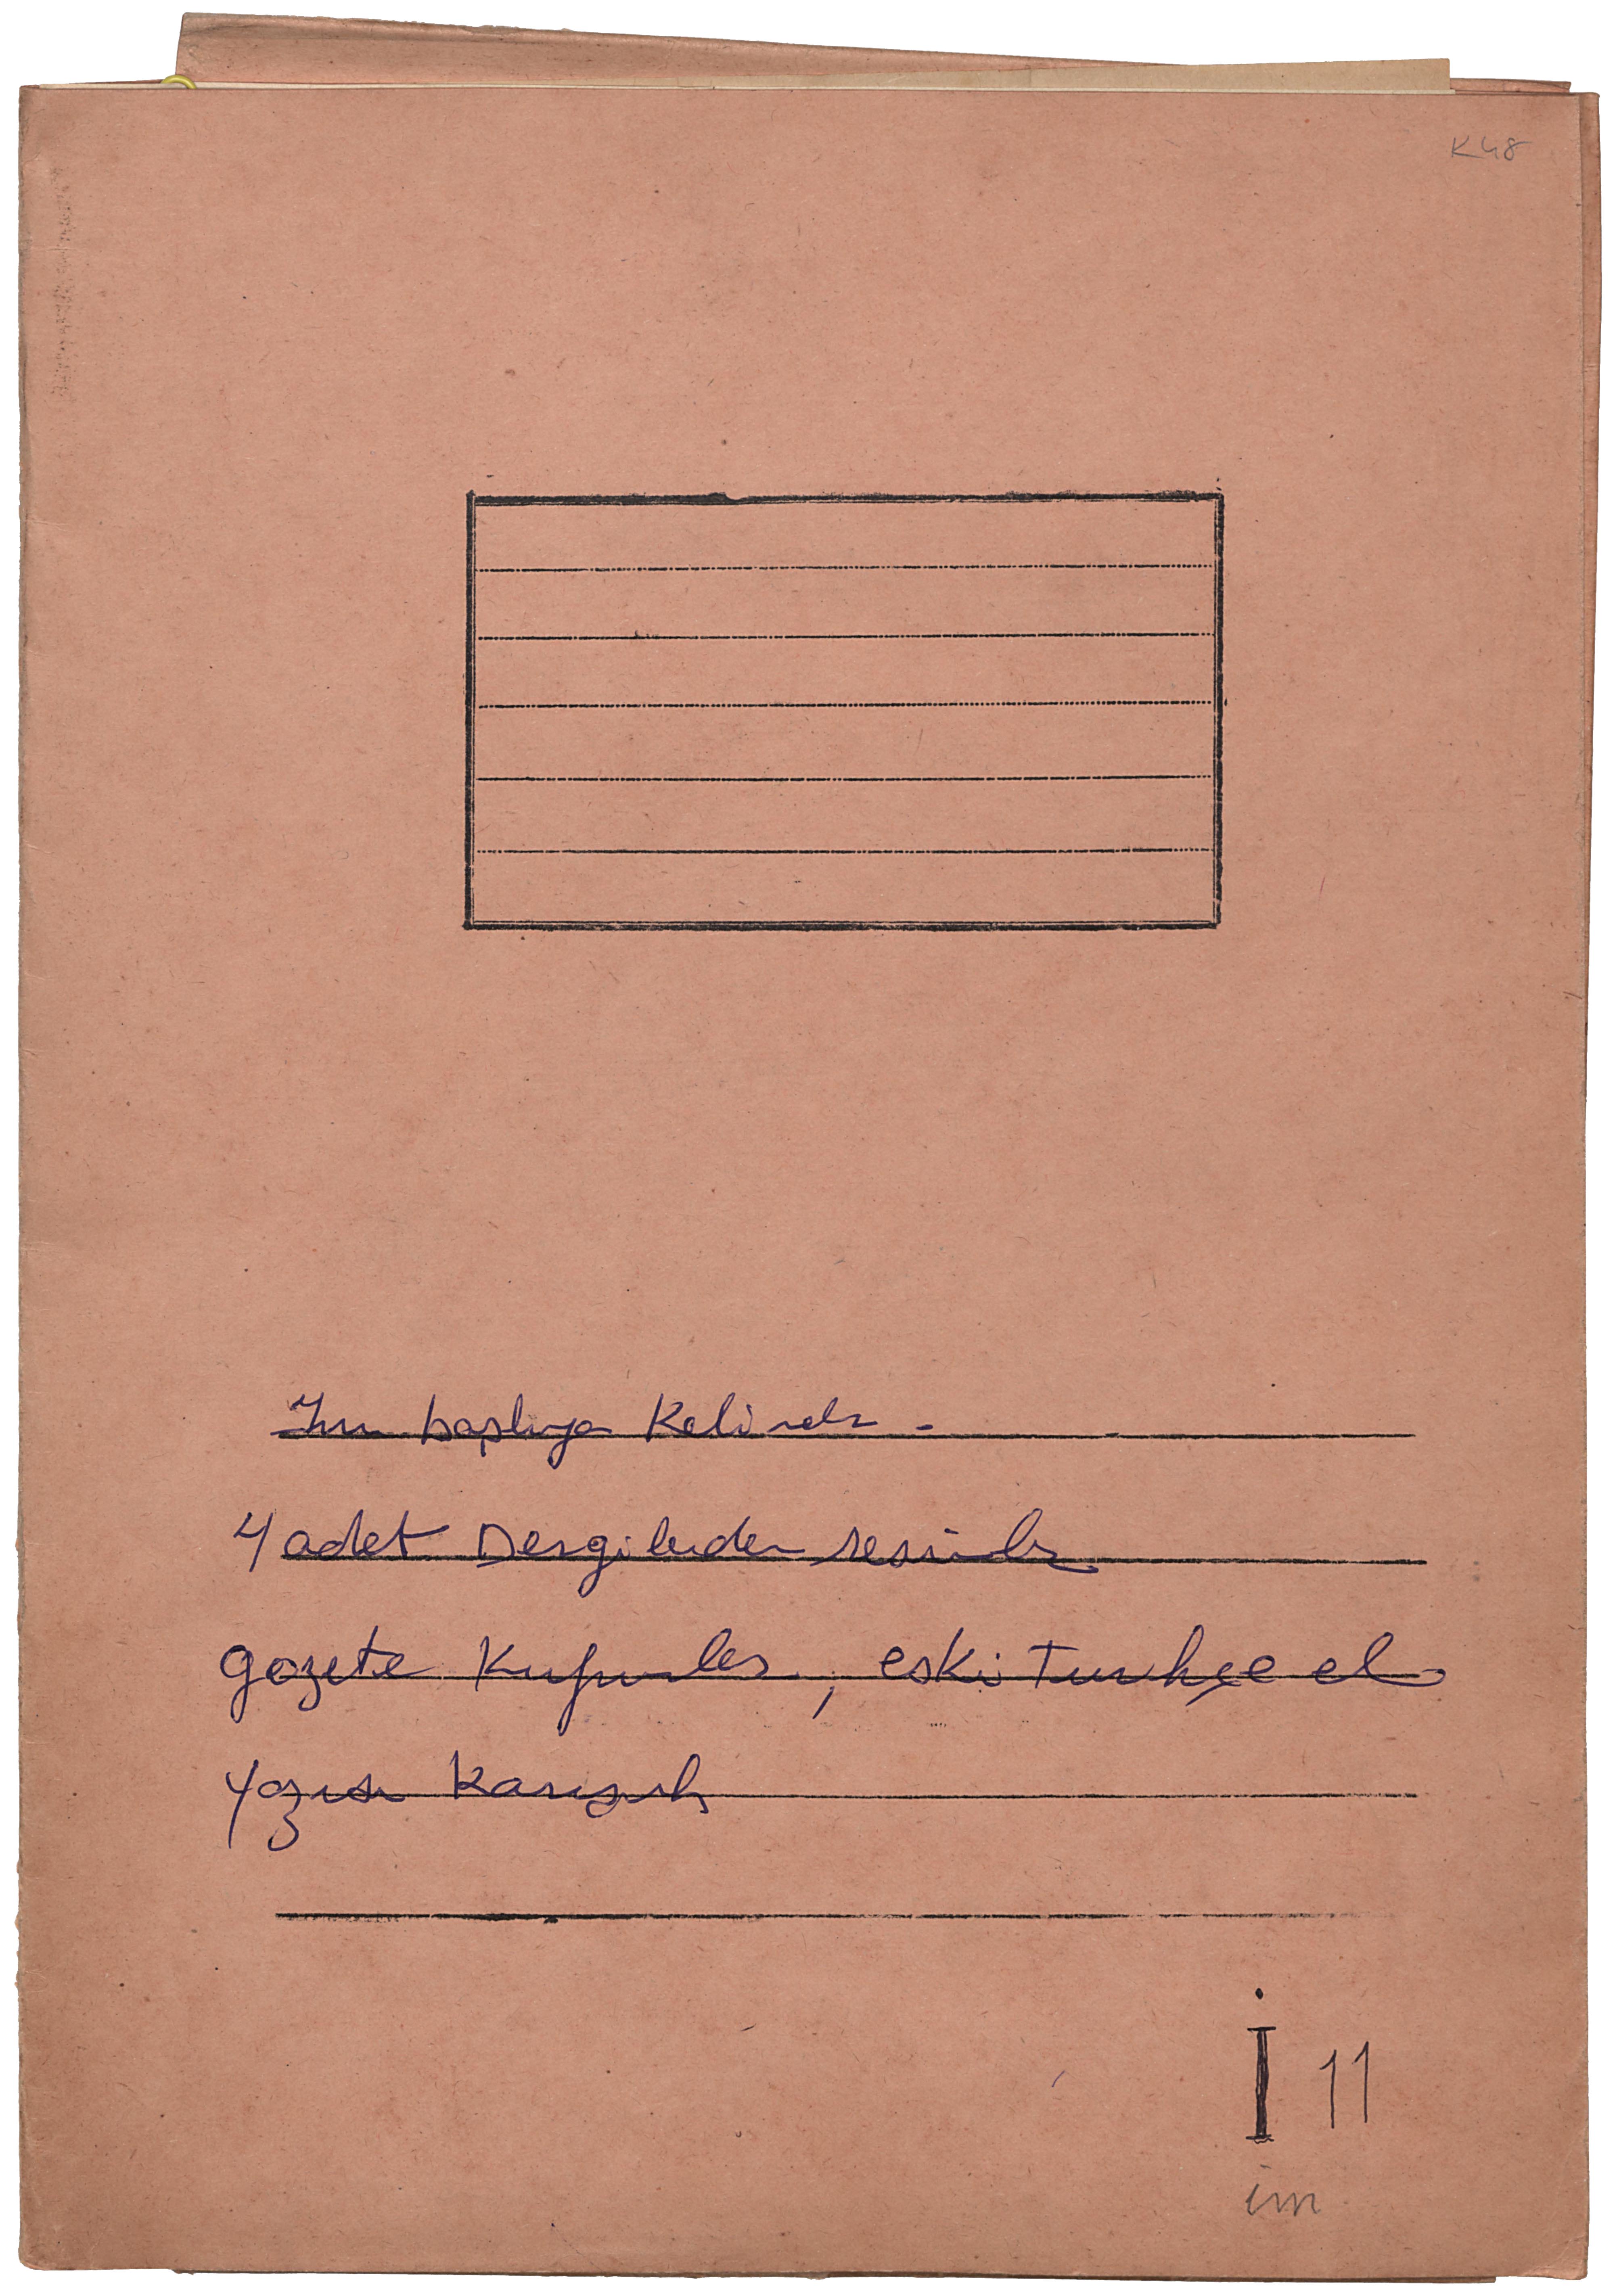 K48
İm başlıya Kelimeler -
4 adet Dergilerden resimler
gazete Kupürleri, eski Türkçe el
yazısı Karışık
İ 11
im